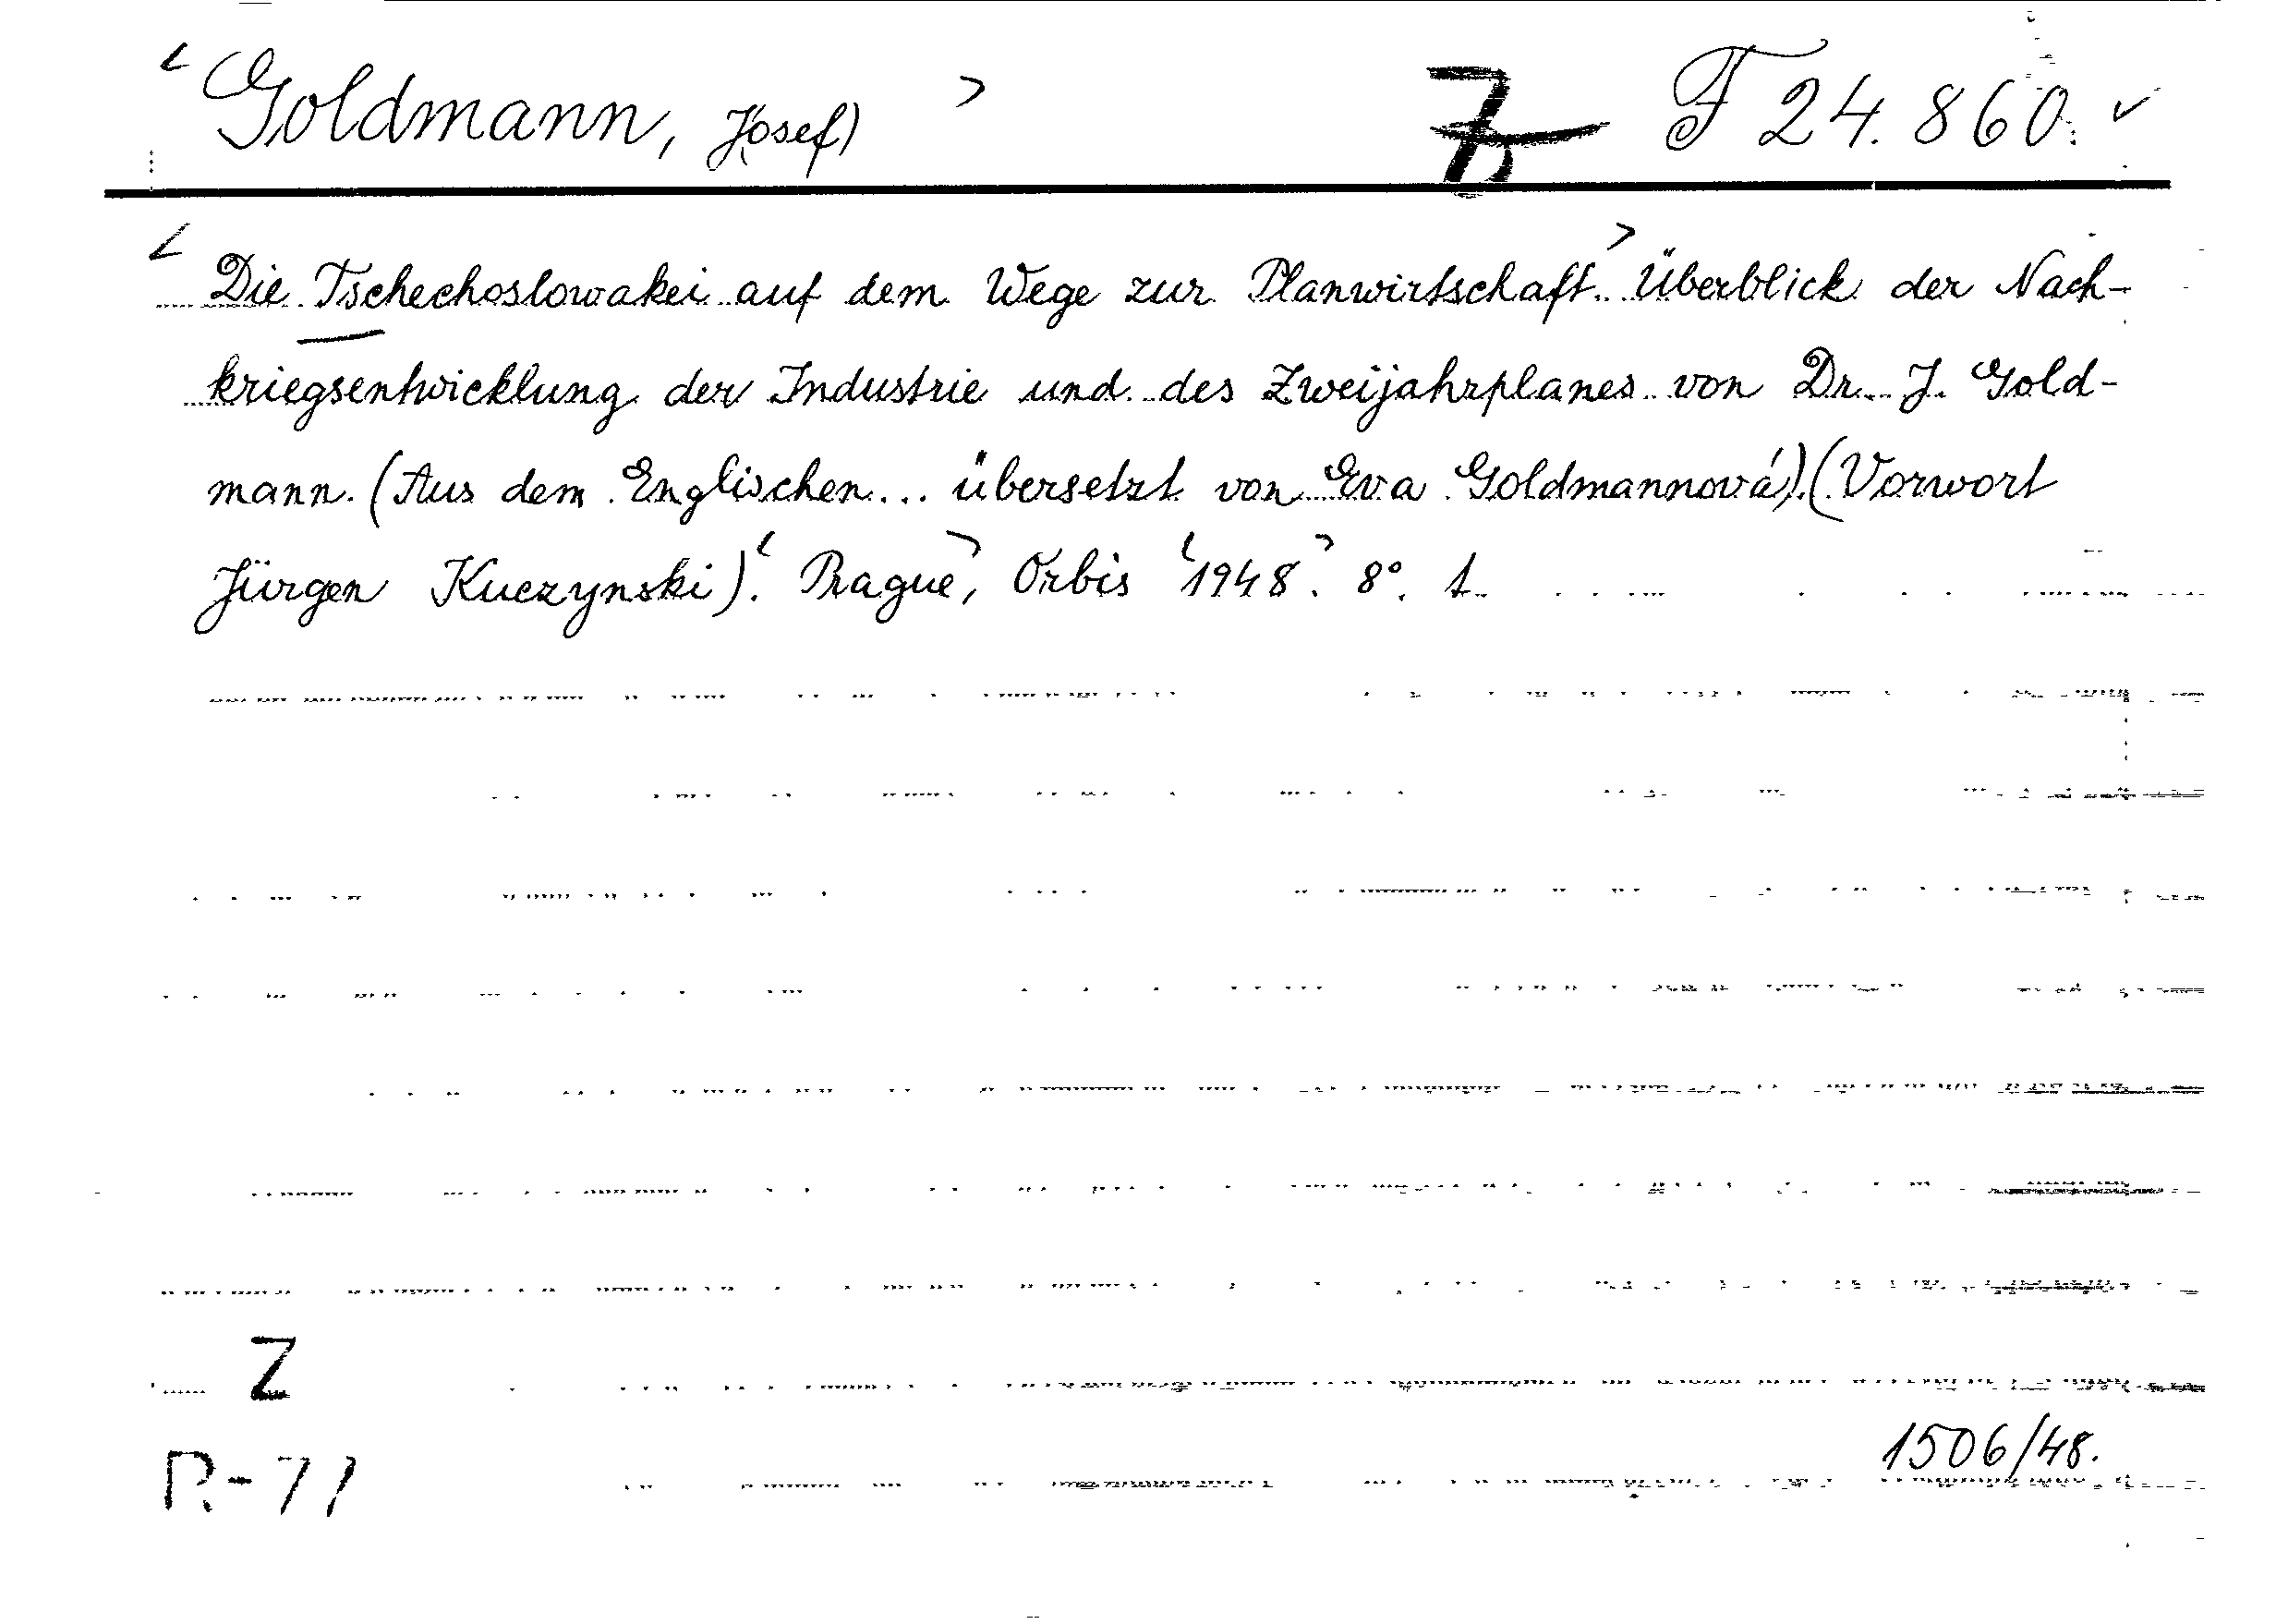 < Goldmann, (Josef) > Z F 24.860. ✓
< Die Tschechoslowakei auf dem Wege zur Planwirtschaft.> Überblick der Nach-
kriegsentwicklung der Industrie und des Zweijahrplanes von Dr. J. Gold-
mann. (Aus dem Englischen... übersetzt von Eva Goldmannová).(Vorwort
Jürgen Kuczynski). <Prague>, Orbis <1948.> 8°. 1.
Z
R-71
1506/48.